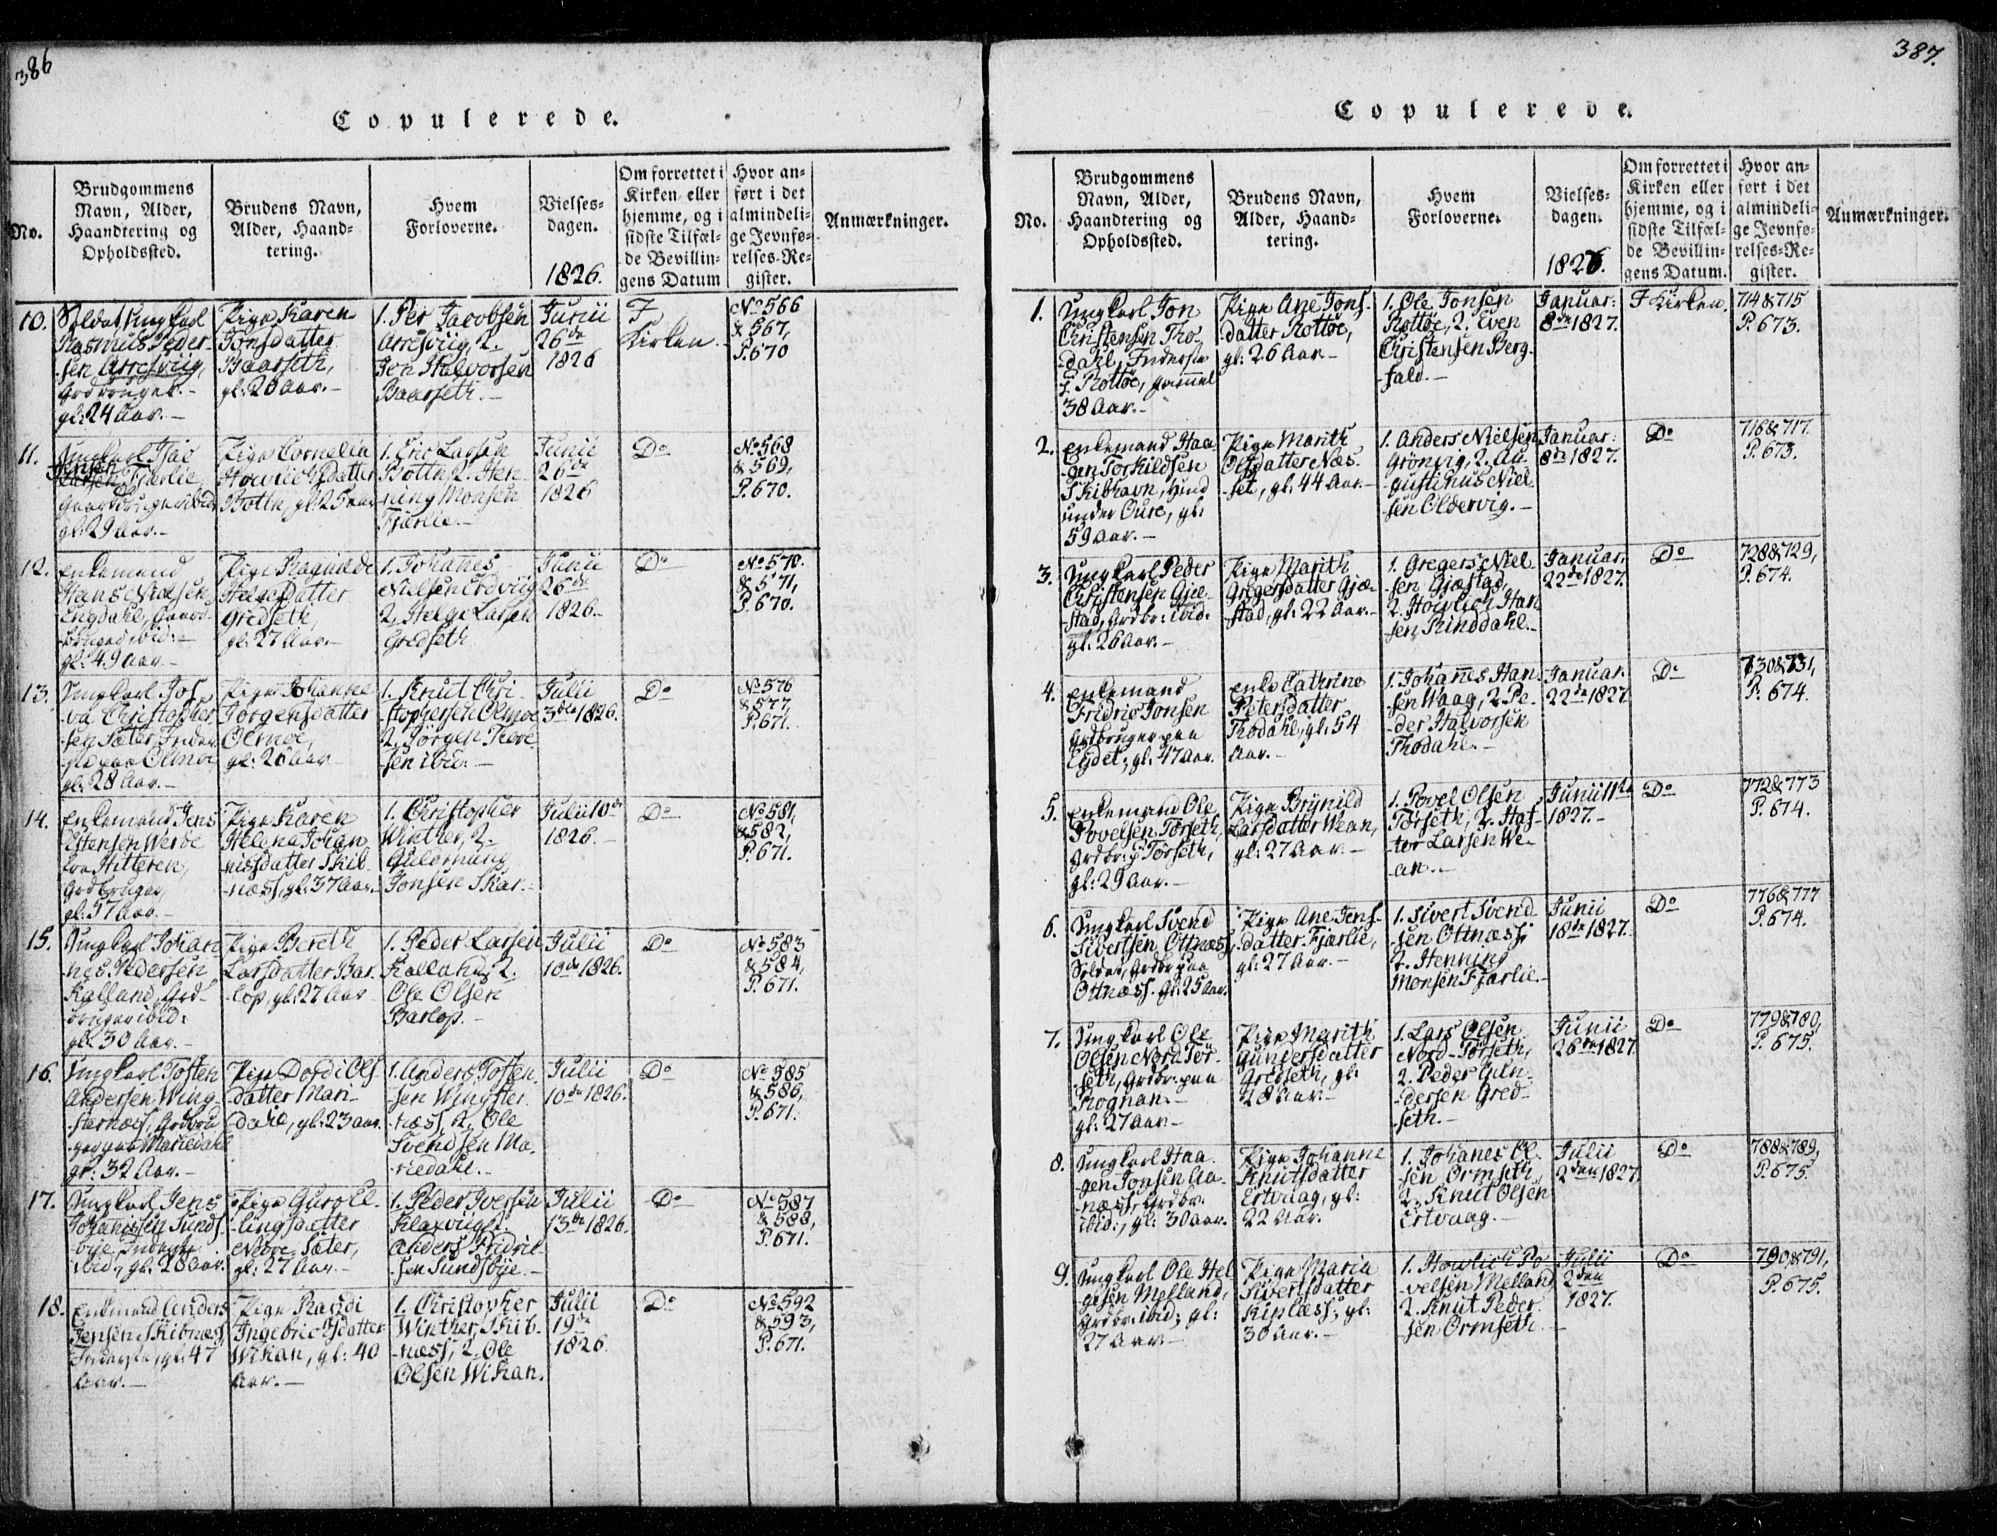 386
Copulerede.
No.
Brudgommens
Navn, Alder,
Haandtering og
Opholdssted.
Brudens Navn,
Alder, Haand-
tering.
Hvem
Forloverne.
Vielses-
dagen.
1826.
Om forrettet i
Kirken eller
hjemme, og i
sidste Tilfæl-
de Bevillin-
gens Datum
Hvor an-
ført i det
almindeli-
ge Jevnfø-
relses-Re-
gister.
Anmærkninger.
10.
Soldat, Ungkarl
Rasmus Peder
sen Arresviig,
Grdbruger.
gl: 24 Aar.
Pige Karen
Jonsdatter
Baarseth,
gl: 20 Aar.
1. Per Jacobsen
Arresviig, 2.
Jon Halvorsen
Baarseth.
Junii
26de
1826
I
Kirken.
No 566
& 567,
P. 670
11.
Ungkarl
Jensen Fjærlie,
gl: 29 Aar.
Pige Cornelia
Howlichsdatter
Botten, gl: 25 Aar
1. Eric Larsen
Botten 2. Hen
ning Monsen
Fjærlie.
Junii
26de
1826
Do
No 568
& 569,
P. 670.
12.
Enkemand
Hans Nielsen
Engdahl,
gl: 49 Aar.
Pige Ragnilde
Helgesdatter
Gredseth,
gl: 27 Aar.
1. Johanes
Nielsen
2. Helge Larsen
Gredseth
Junii
26de
1826.
Do
No 570.
& 571,
P. 670.
13.
Ungkarl Jos
va Christopher
sen Sæter,
paa Olmoe
gl: 28 Aar.
Pige Johanne
Jørgensdatter
Olmoe,
gl: 20 Aar
1. Knut Chri-
stophersen Olmoe
2. Jörgen
sen ibid.
Julii
3die 1826.
Do
No 576
& 577,
P. 671.
14.
Enkemand Jens
Estensen
fra Hitteren,
Grdbruger,
gl: 57 Aar.
Pige Karen
Helena Johan
nisdatter Skib-
næss, gl: 37 Aar.
1. Christopher
Winther, 2.
Guldmand
Jonsen Skar.
Julii 10de
1826.
Do
No 581,
& 582,
P. 671.
15.
Ungkarl Johan
nes Pedersen
Kalland, Grd-
bruger ibid:
gl: 30 Aar.
Pige Bereth
Larsdatter Bar-
lop, gl: 27 Aar
1. Peder Larsen
Kalland, 2.
Ole Olsen
Barlop.
Julii
10de 1826.
Do
No 583
& 584,
P. 671.
16.
Ungkarl Tosten
Andersen Wing-
sternæss, Grdbru
ger paa Mariedahl
gl: 32 Aar.
Pige Dordi Ols
datter Mari-
dahl, gl: 23 Aar
1. Anders Tosten
sen Wingster
næss, 2. Ole
Svendsen Ma-
riedahl.
Julii
10de 1826.
Do
No 585
& 586,
P. 671.
17.
Ungkarl Jens
Johannesen Sunds-
øye, Inderst
ibid, gl: 28 Aar.
Pige Guro El-
lingsdatter
Nedre Sæter,
gl: 27 Aar.
1. Peder Iversen
Klaxviigen
Anders Fridrik
sen Sundsøye.
Julii
13de 1826.
Do
No 587
& 588,
P. 671.
18.
Enkemand Anders
Jensen Skibnæss
Inderst, gl: 47
Aar.
Pige Randi
Ingebrictsdatter
Wikan, gl: 40
Aar.
1. Christopher
Winther, Skib-
næss, 2. Ole
Olsen Wikan.
Julii
19de
1826.
Do
No 592
& 593,
P. 671.
387.
Copulerede.
No.
Brudgommens
Navn, Alder,
Haandtering og
Opholdssted.
Brudens Navn,
Alder, Haand-
tering.
Hvem
Forloverne.
Vielses-
dagen.
Om forrettet i
Kirken eller
hjemme, og i
sidste Tilfæl-
de Bevillin-
gens Datum.
Hvor an-
ført i det
almindeli-
ge Jevnfø-
relses-Re-
gister.
Anmærkninger.
1.
Ungkarl Jon
Christensen Tho-
dahl, Inderst
p. Rottøe, gammel
38 Aar.
Pige Ane Jons-
datter Rottøe,
gl: 26 Aar
1. Ole Jonsen
Rottøe, 2. Even
Christensen Berg-
fald.
Januar:
8de 1827.
I Kirken.
714 & 715
P. 673.
2.
Enkemand Haa
gen Torkildsen
Skibhavn,
under Oure, gl:
59 Aar.
Pige Marith
Olsdatter Næs-
set, gl: 44 Aar.
1. Anders Nielsen
Grönvig, 2. Au-
gustinus Niel-
sen Oldervig.
Januar:
8de 1827.
Do
716 & 717.
P. 673.
3.
Ungkarl Peder
Christensen Gjæ-
stad, Grdbr: ibid:
gl: 26 Aar.
Pige Marith
Gregersdatter Gjæ-
stad, gl: 22 Aar.
1. Gregers Niel-
sen Gjæstad,
2. Howlich Han
sen Rinddahl.
Januar:
22de 1827.
Do
728 & 729,
P. 674.
4.
Enkemand
Fridric Jonsen
Grdbruger paa
Eydet, gl: 47 Aar.
Enke Cathrine
Petersdatter
Thodahl, gl: 54
Aar.
1. Johannes Han
sen Waag, 2. Pe-
der Halvorsen
Thodahl.
Januar.
22de 1827
Do
730 & 731,
P. 674.
5.
Enkemand Ole
Povelsen Törseth,
Grdbr: p Törseth,
gl: 29 Aar.
Pige Brynild
Larsdatter Wean,
gl: 27 Aar.
1. Povel Olsen
Törseth, 2. Has-
tor Larsen We-
an.
Junii 11te
1827.
Do
772 & 773
P. 674.
6.
Ungkarl Svend
Sivertsen Ottnæss,
Soldat, Grdbr paa
Ottnæss. gl: 25 Aar.
Pige Ane Jens-
datter Fjærlie,
gl: 27 Aar.
1. Sivert Svend
sen Ottnæss,
2. Henning
Monsen Fjærlie.
Junii
18de 1827.
Do
776 & 777
P. 674.
7.
Ungkarl Ole
Olsen Nord Tör-
seth, Grdbr: paa
Rognan.
gl: 27 Aar.
Pige Marith
Gundersdatter
Gredseth, gl:
28 Aar.
1. Lars Olsen
Nord-Törseth,
2. Peder Gun-
dersen Gred-
seth.
Junii
26de 1827.
Do
779 & 780,
P. 675.
8.
Ungkarl Haa-
gen Jonsen Aa-
næss, Grdbr:
ibid:, gl: 30 Aar.
Pige Johanne
Knutsdatter
Ertvaag, gl:
22 Aar.
1. Johanes Ol-
sen Ormseth,
2. Knut Olsen
Ertvaag.
Julii
2den 1827
Do
788 & 789,
P. 675.
9.
Ungkarl Ole Hel
gesen Melland,
Grdbr: ibid; gl:
27 Aar
Pige Maria
Sivertsdatter
Kiplæss; gl:
30 Aar.
1. Howlich Po
velsen Melland,
2. Knut Peder
sen Ormseth.
Julii
2den
1827.
Do
790 & 791,
P. 675.